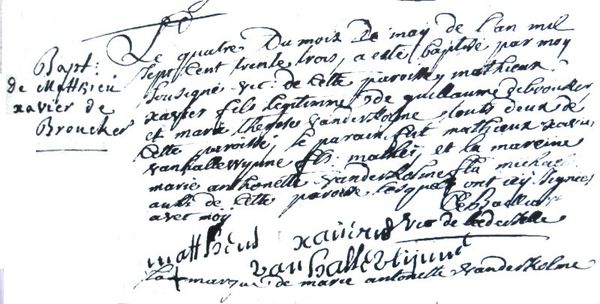 Bapt:
de Matthieu
xavier de
Broucker
Le quatre Du mois de may de l'an mil
sept cent trente trois, a esté baptisé par moy
sousigné vic: de cette paroisse mathieux
xavier fils legitimme de guillaume debroucker
et marie therese vanderholme touts deux de
cette paroisse, le parain fut mathieux xavier
vanhallewynne fls. mathis et la mareine
marie anthonette vanderholme fla michiel
aussi de cette paroisse lesquels ont icy signees
avec moy
vic de ledeselle
matthieus xaverius
van halleweijnne
la + marque de marie antonette vanderholme